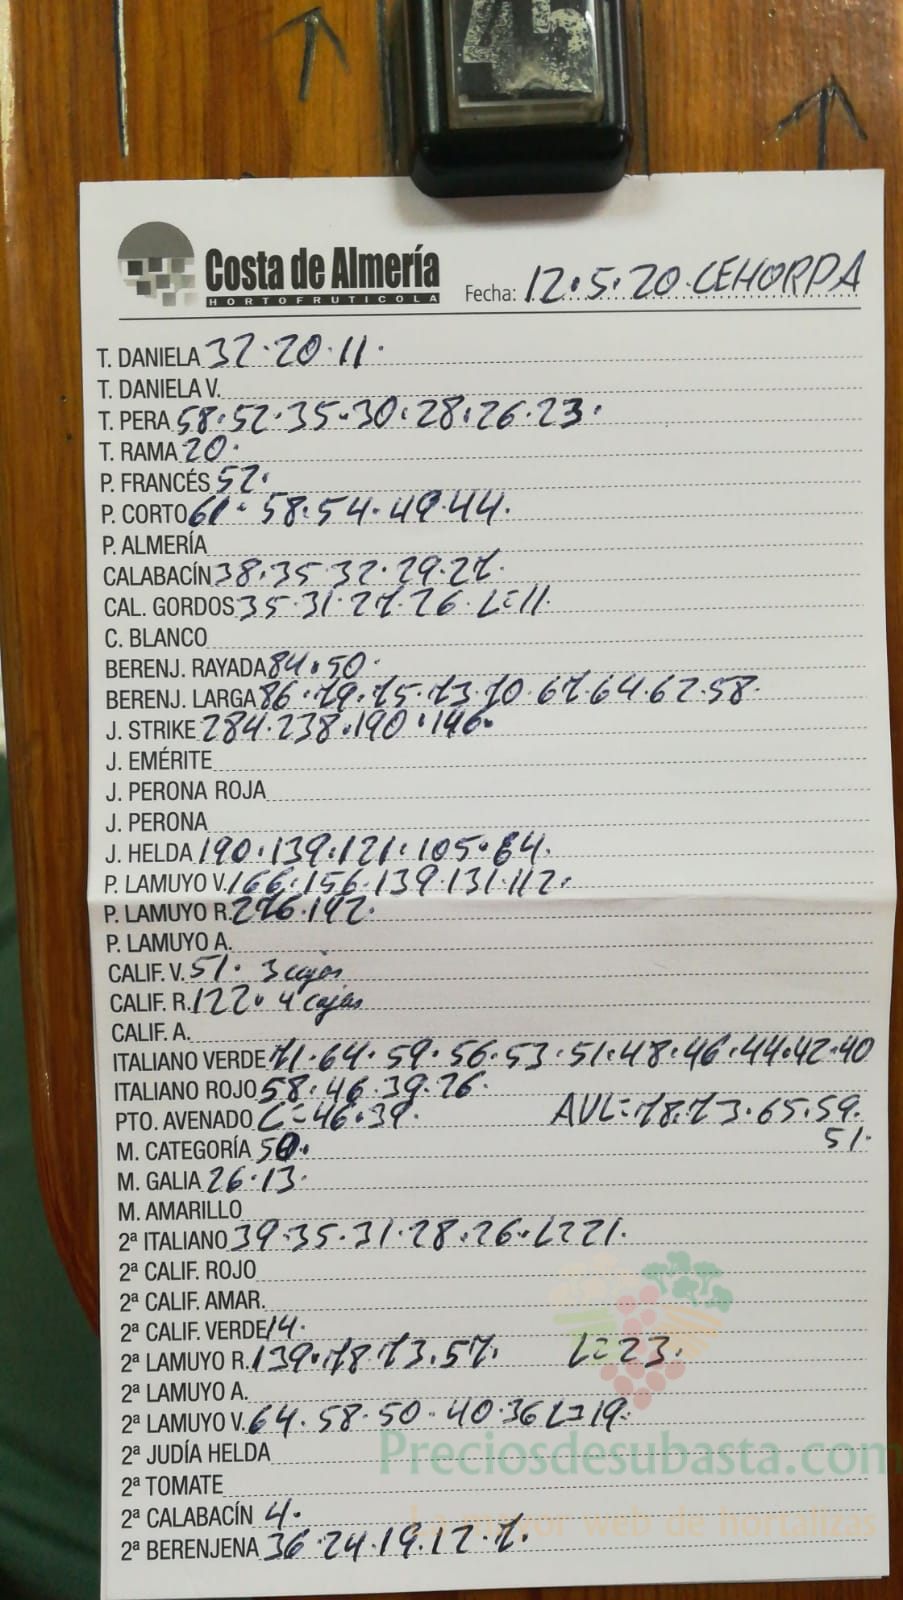 Costa de Almería
HORTOFRUTICOLA
Fecha: 12.5.20 CEHORPA
T. DANIELA 32.20.11.
T. DANIELA V.
T. PERA 58.52.35.30.28.26.23.
T. RAMA 20.
P. FRANCÉS 52.
P. CORTO 61. 58.54.49.44.
P. ALMERÍA
CALABACÍN 38.35.32.29.27.
CAL. GORDOS 35.31.27.26. L=11.
C. BLANCO
BERENJ. RAYADA 84.50.
BERENJ. LARGA 86.79.75.73.70.67.64.62.58.
J. STRIKE 284.238.190.146.
J. EMÉRITE
J. PERONA ROJA
J. PERONA
J. HELDA 190.139.121.105.84.
P. LAMUYO V. 166.156.139.131.112.
P. LAMUYO R. 276.192.
P. LAMUYO A.
CALIF. V. 51. 3 cajas
CALIF. R. 122. 4 cajas
CALIF. A.
ITALIANO VERDE 71.64.59.56.53.51.48.46.44.42.40
ITALIANO ROJO 58.46.39.26.
PTO. AVENADO C=46.39. AVL=78.73.65.59.
51.
M. CATEGORÍA 50.
M. GALIA 26.13.
M. AMARILLO
2ª ITALIANO 39.35.31.28.26. L=21.
2ª CALIF. ROJO
2ª CALIF. AMAR.
2ª CALIF. VERDE 14.
2ª LAMUYO R. 139.78.73.57. L=23.
2ª LAMUYO A.
2ª LAMUYO V. 64.58.50.40.36 L=19.
2ª JUDÍA HELDA
Preciosdesubasta.com
2ª TOMATE
2ª CALABACÍN 4.
La mayor web de hortalizas
2ª BERENJENA 36.24.19.12.7.